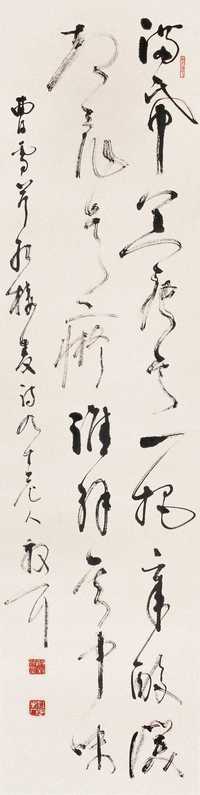 满帋荒唐言一把辛酸淚
都云作者癡誰解其中味
曹雪芹紅樓夢詩九十老人散耳